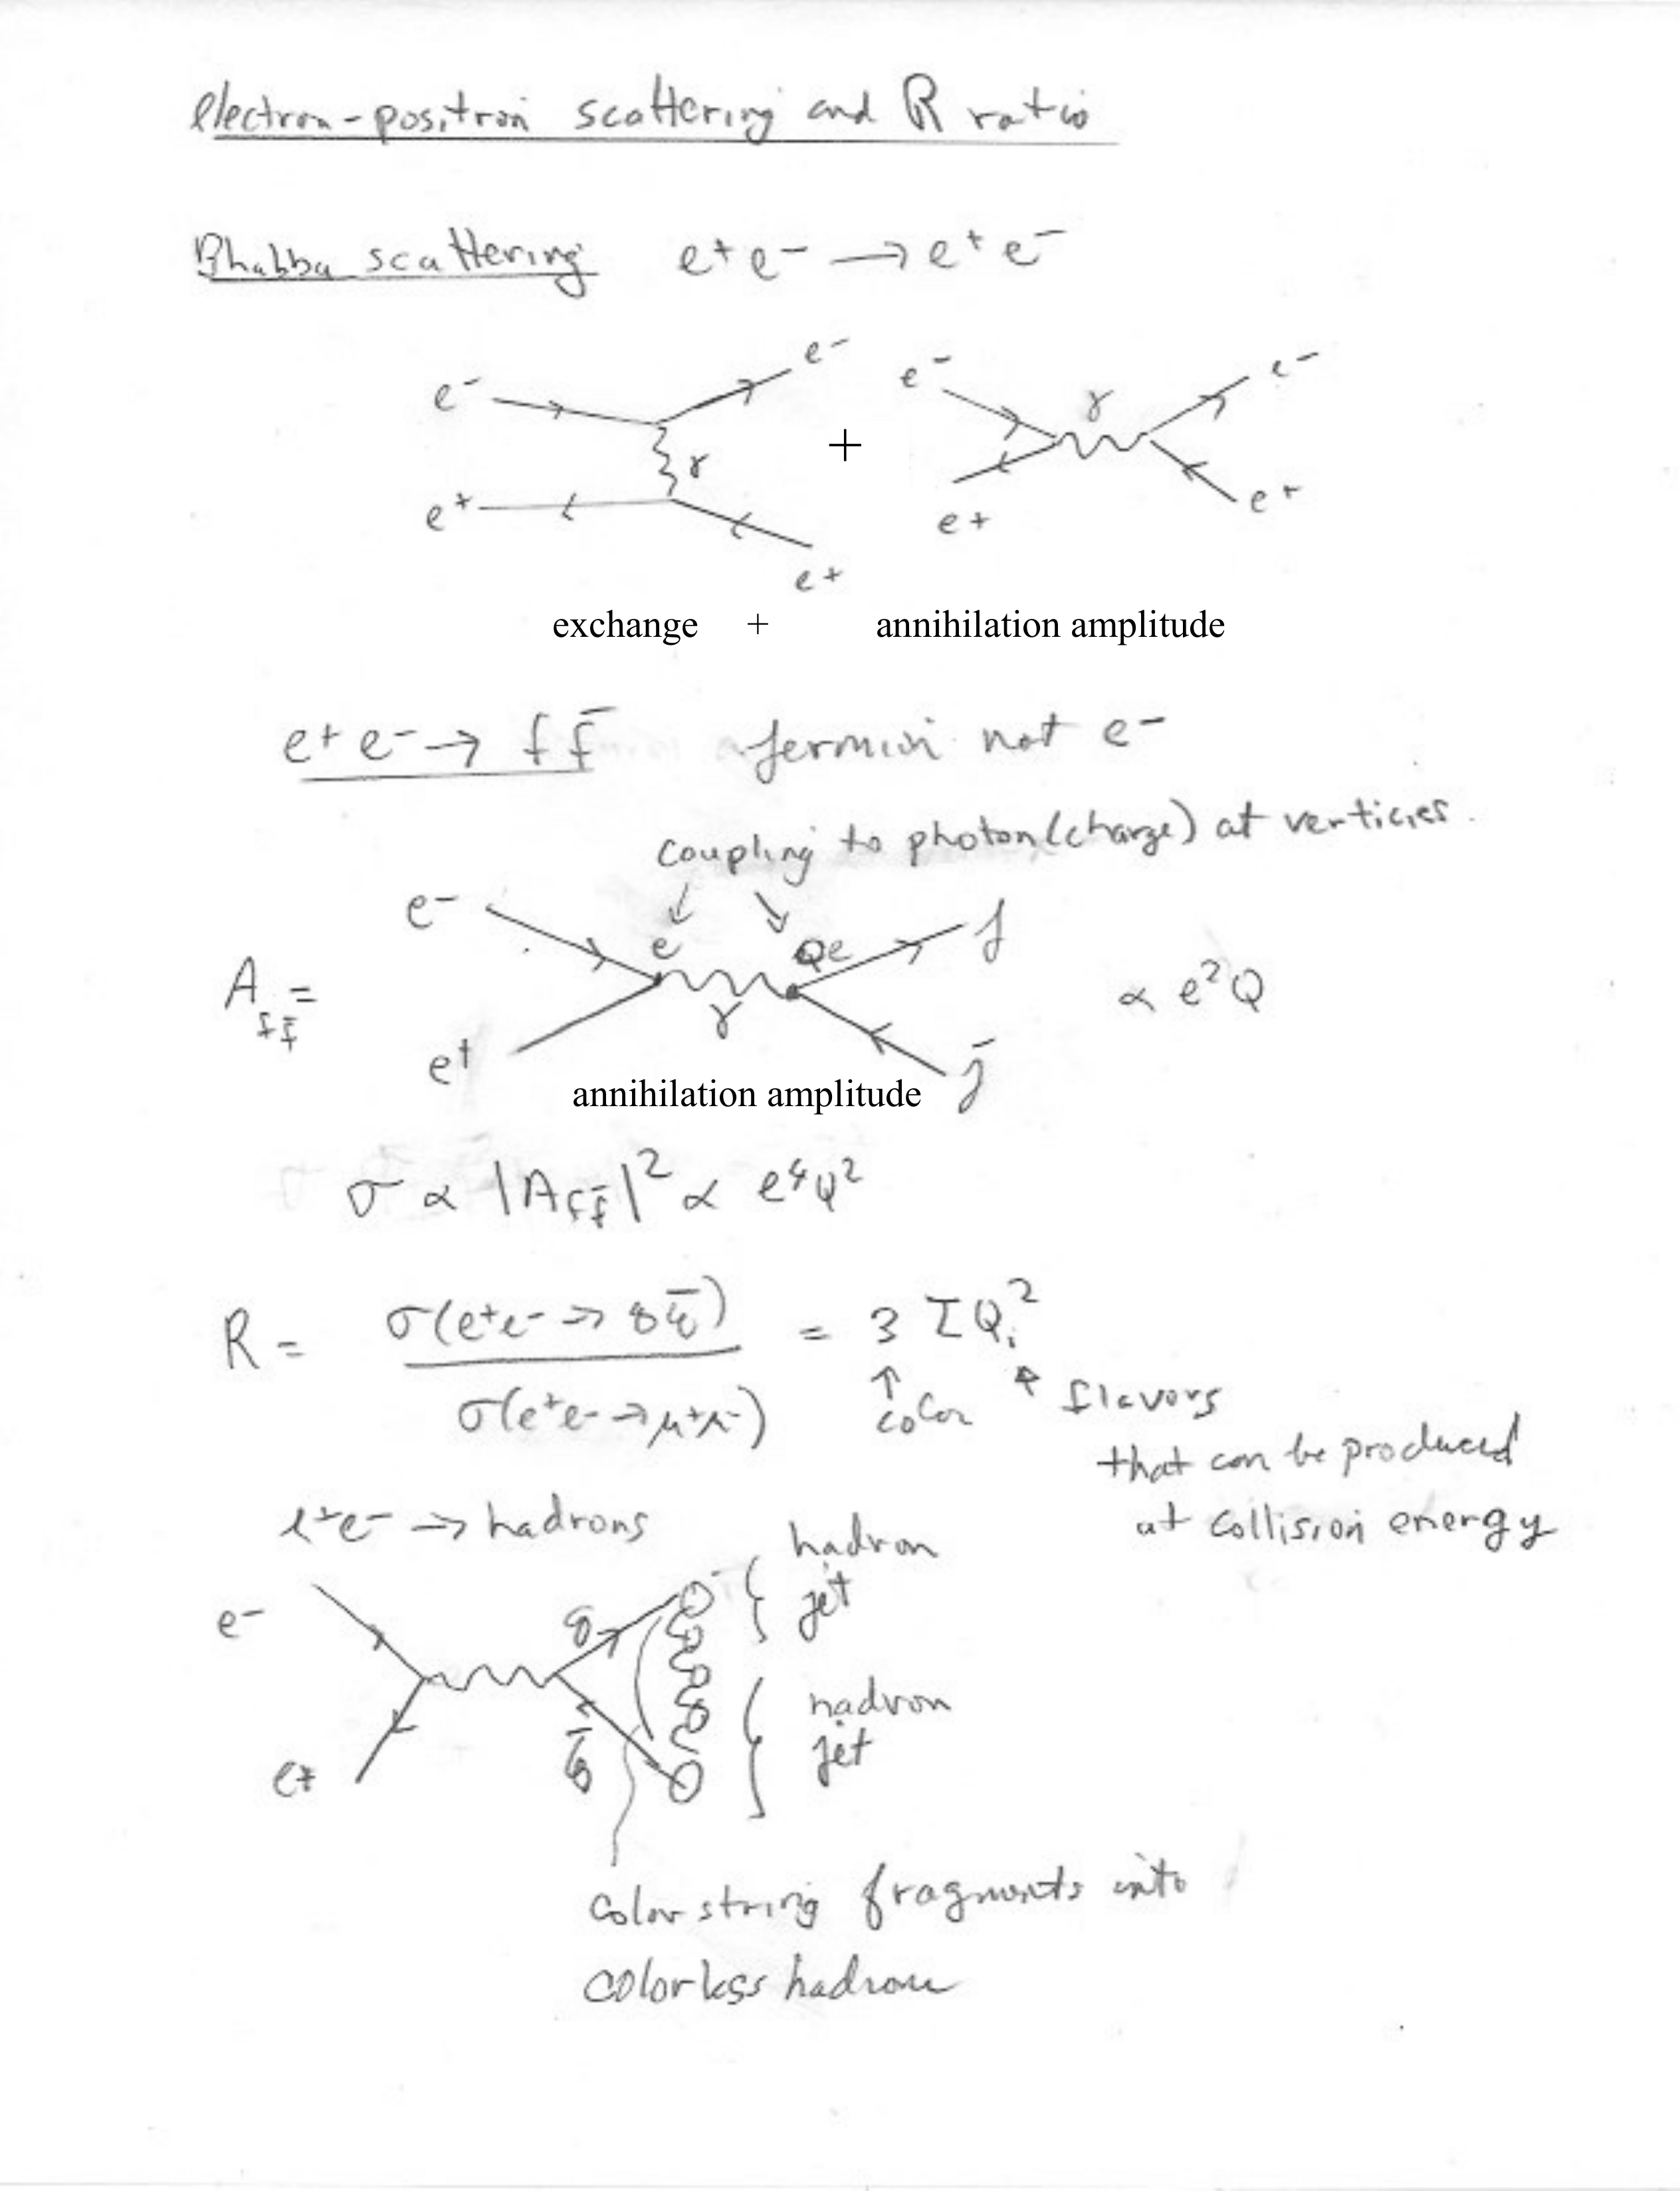 electron-positron scattering and R ratio
Bhabba scattering e⁺e⁻ → e⁺e⁻
e⁻ e⁻ e⁻ γ e⁻
γ +
e⁺ e⁺ e⁺ e⁺
exchange + annihilation amplitude
e⁺e⁻ → f f̄ a fermion not e⁻
coupling to photon (charge) at verticies.
e⁻ e Qe f
A_{f f̄} = γ ∝ e²Q
e⁺ f̄
annihilation amplitude
σ ∝ |A_{f f̄}|² ∝ e⁴Q²
R = σ(e⁺e⁻ → q q̄) / σ(e⁺e⁻ → μ⁺μ⁻) = 3 Σ Qᵢ²
↑ color ↑ flavors
that can be produced
at collision energy
e⁺e⁻ → hadrons
e⁻ q hadron
jet
e⁺ q̄ hadron
jet
color string fragments into
colorless hadrons